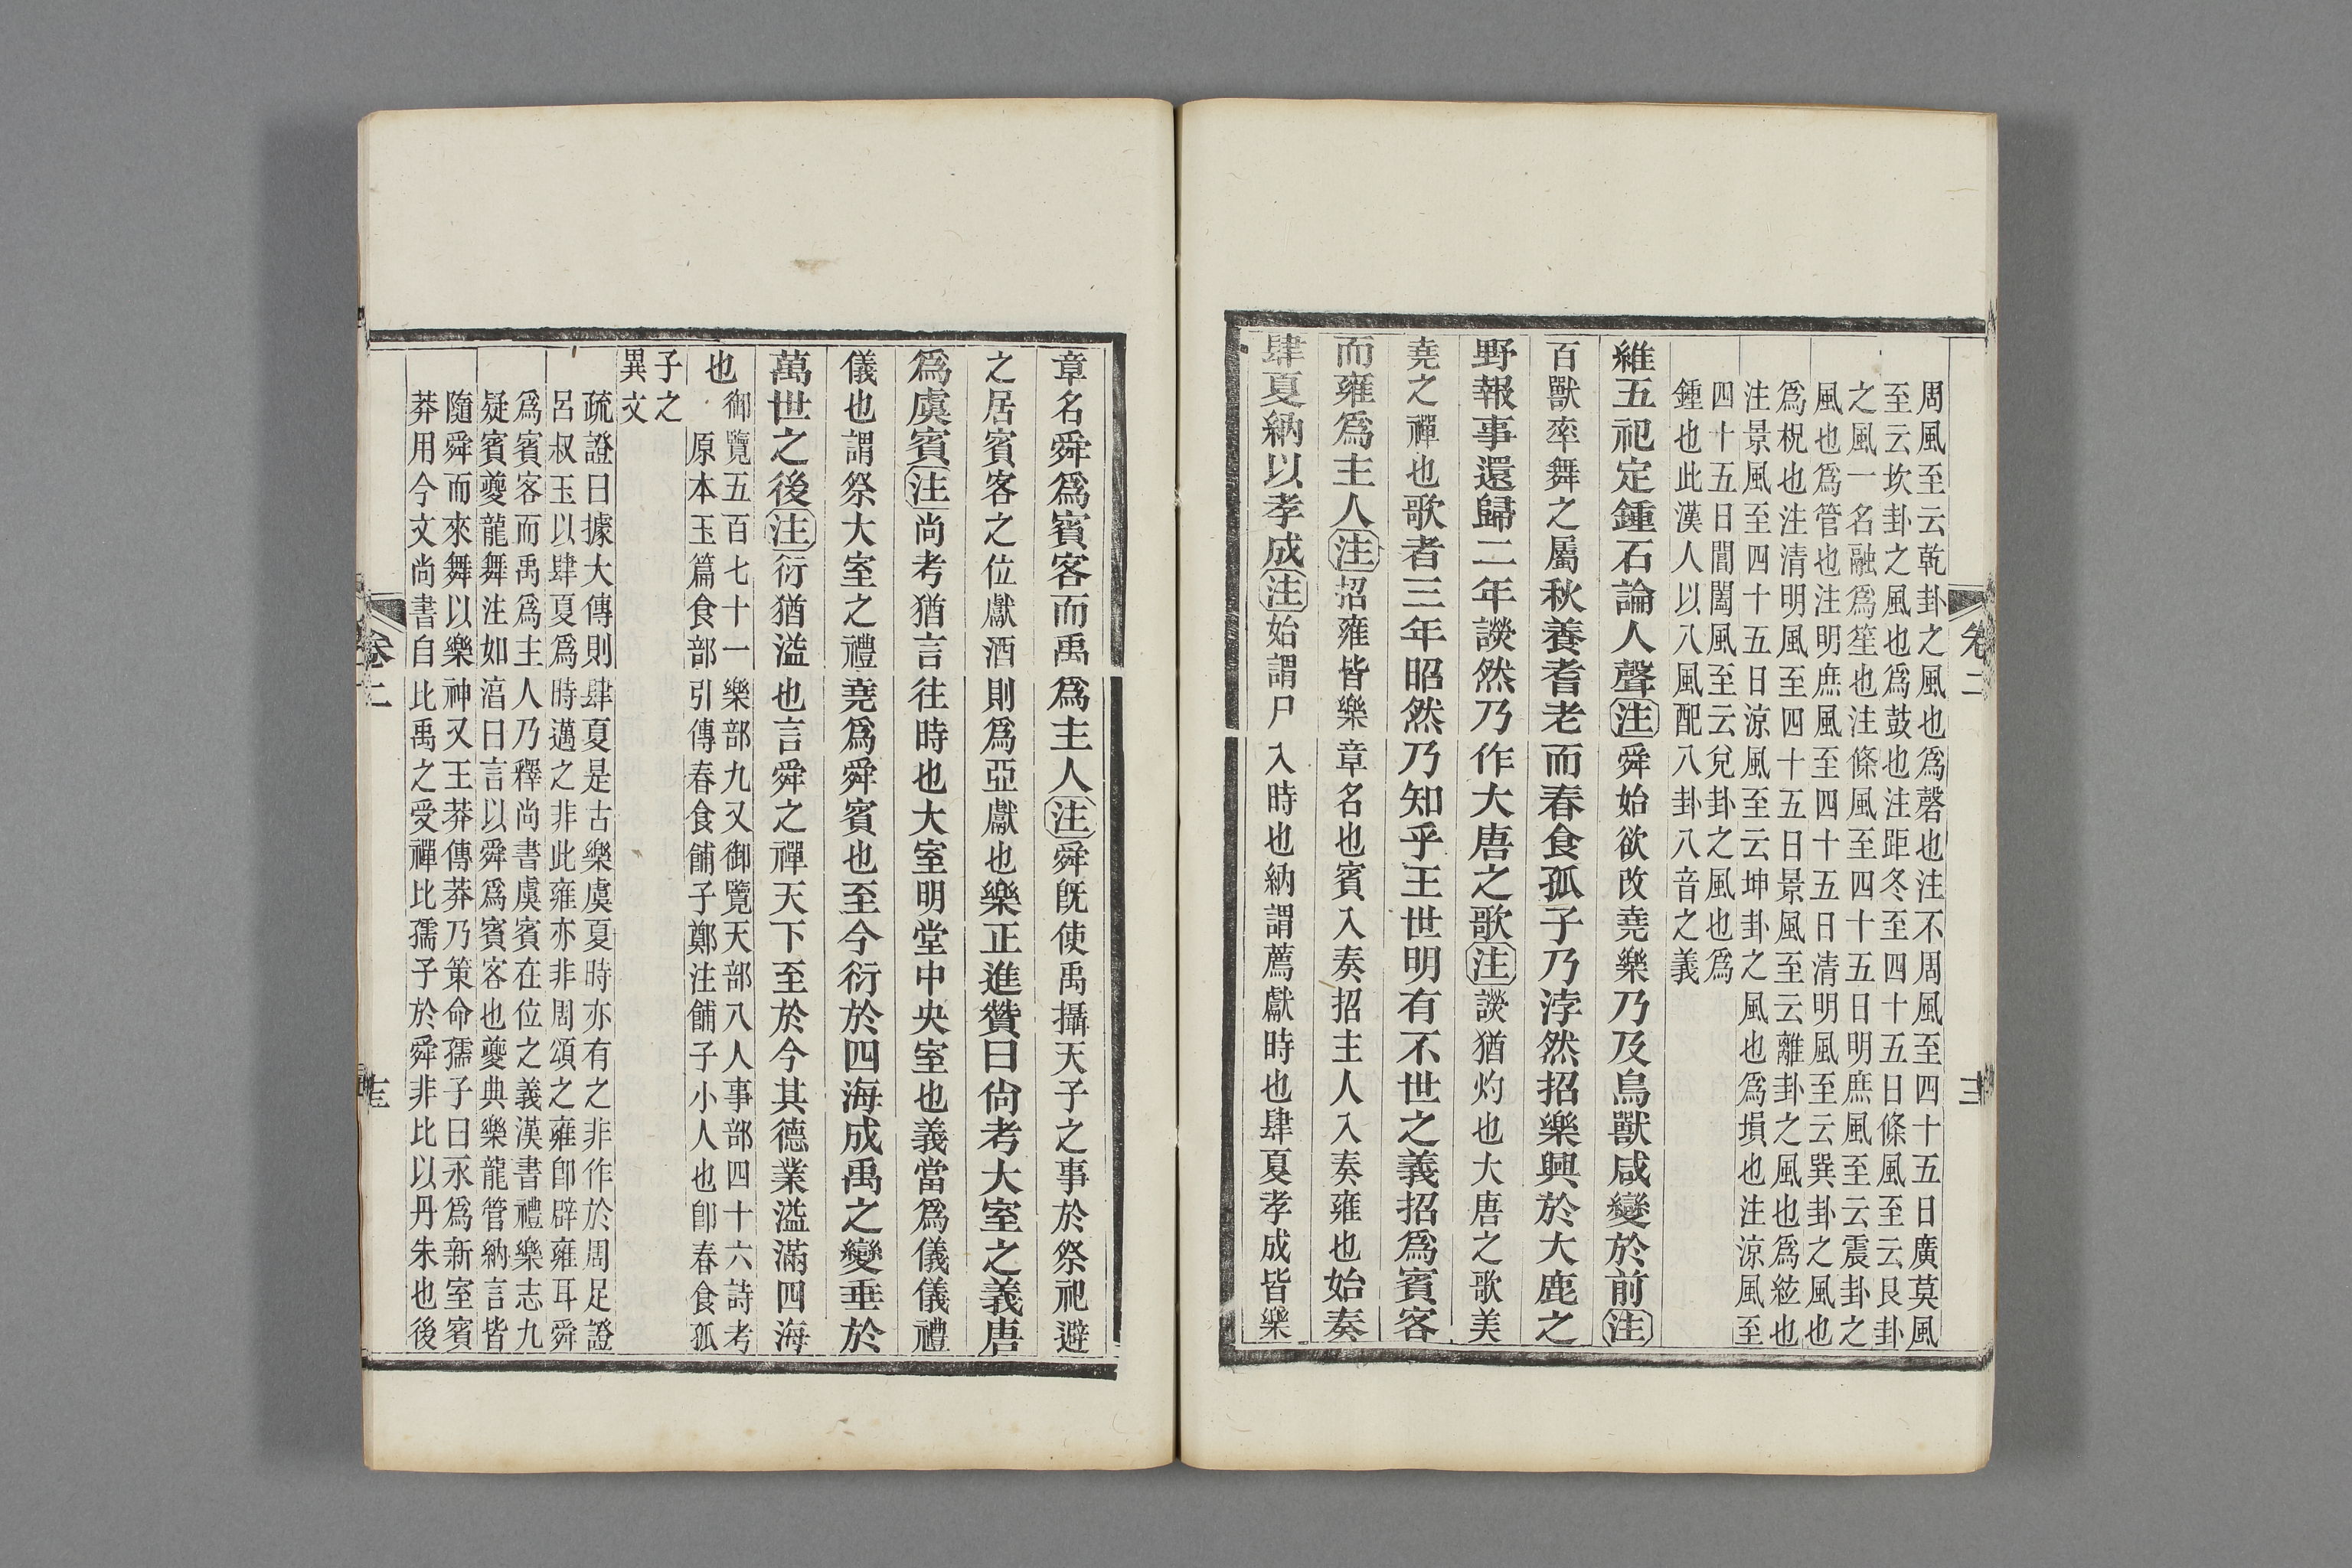 周風至云乾卦之風也爲磬也注不周風至四十五日廣莫風
至云坎卦之風也爲鼓也注距冬至四十五日條風至云艮卦
之風一名融爲笙也注條風至四十五日明庶風至云震卦之
風也爲管也注明庶風至四十五日清明風至云巽卦之風也
爲柷也注清明風至四十五日景風至云離卦之風也爲絃也
注景風至四十五日涼風至云坤卦之風也爲塤也注涼風至
四十五日閶闔風至云兌卦之風也爲
鍾也此漢人以八風配八卦八音之義
維五祀定鍾石論人聲注舜始欲改堯樂乃及鳥獸咸變於前注
百獸率舞之屬秋養耆老而春食孤子乃浡然招樂興於大鹿之
野報事還歸二年談然乃作大唐之歌注談猶灼也大唐之歌美
堯之禪也歌者三年昭然乃知乎王世明有不世之義招爲賓客
而雍爲主人注招雍皆樂章名也賓入奏招主人入奏雍也始奏
肆夏納以孝成注始謂尸入時也納謂薦獻時也肆夏孝成皆樂
卷二
章名舜爲賓客而禹爲主人注舜旣使禹攝天子之事於祭祀避
之居賓客之位獻酒則爲亞獻也樂正進贊曰尙考大室之義唐
爲虞賓注尙考猶言往時也大室明堂中央室也義當爲儀儀禮
儀也謂祭大室之禮堯爲舜賓也至今衍於四海成禹之變垂於
萬世之後注衍猶溢也言舜之禪天下至於今其德業溢滿四海
也
御覽五百七十一樂部九又御覽天部八人事部四十六詩考
原本玉篇食部引傳春食餔子鄭注餔子小人也卽春食孤
子之
異文
疏證曰據大傳則肆夏是古樂虞夏時亦有之非作於周足證
呂叔玉以肆夏爲時邁之非此雍亦非周頌之雍卽辟雍耳舜
爲賓客而禹爲主人乃釋尚書虞賓在位之義漢書禮樂志九
疑賓夔龍舞注如淳曰言以舜爲賓客也夔典樂龍管納言皆
隨舜而來舞以樂神又王莽傳莽乃策命孺子曰永爲新室賓
莽用今文尚書自比禹之受禪比孺子於舜非比以丹朱也後
卷二